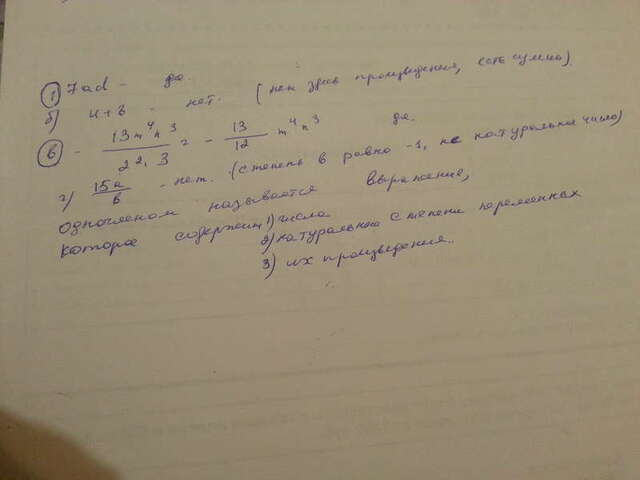 1) 7ad - да.
б) 4+b - нет. (нет здесь произведения, есть сумма)
в) - 13m⁴n³ / 2²·3 = - 13/12 m⁴n³ да.
г) 15a/b - нет. (степень b равно -1, не натуральное число)
одночленом называется выражение,
которое содержит 1) числа
2) натуральные степени переменных
3) их произведения..